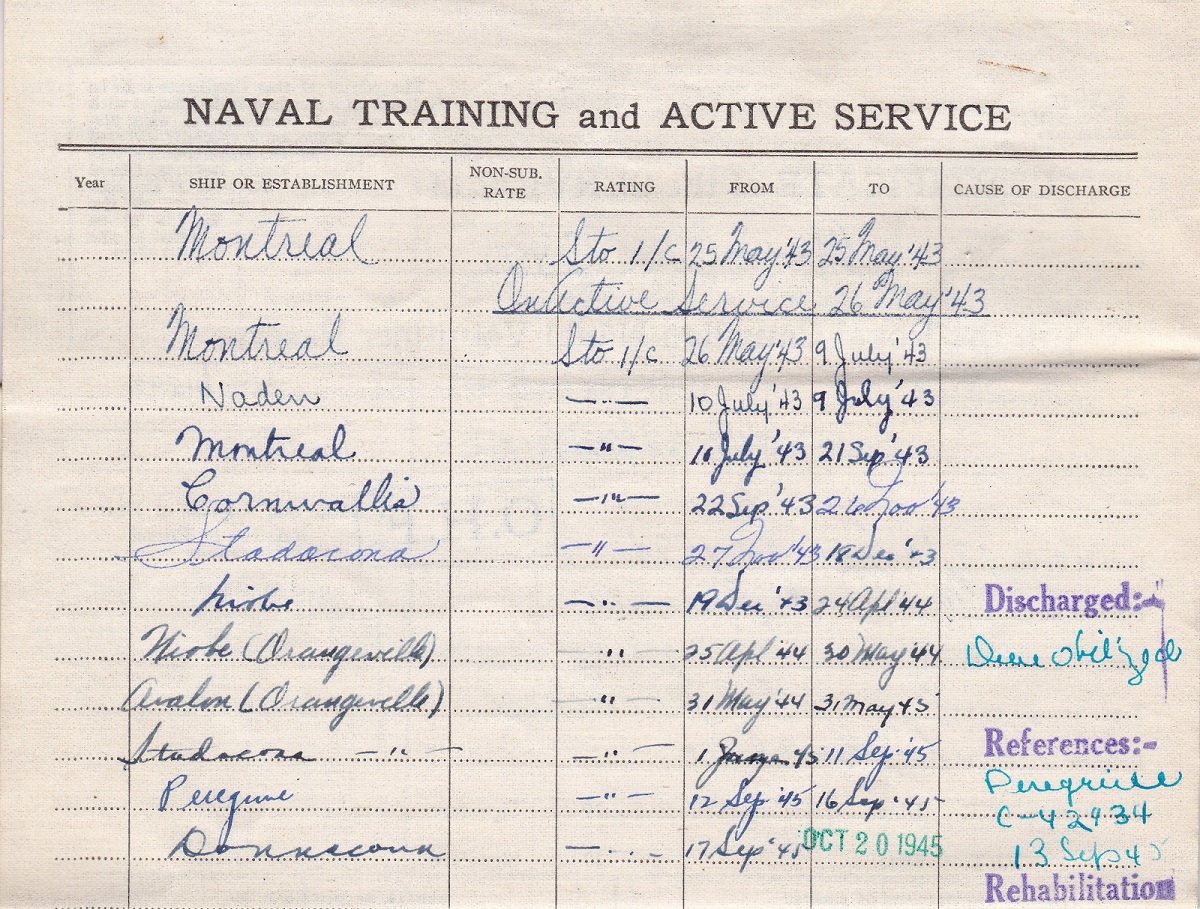 NAVAL TRAINING and ACTIVE SERVICE
Year SHIP OR ESTABLISHMENT NON-SUB. RATE RATING FROM TO CAUSE OF DISCHARGE
Montreal Sto 1/c 25 May '43 25 May '43
On Active Service 26 May '43
Montreal Sto 1/c 26 May '43 9 July '43
Naden —"— 10 July '43 9 July '43
Montreal —"— July '43 21 Sep '43
Cornwallis —"— 22 Sep '43 26 Nov '43
Stadacona —"— 27 Nov '43 18 Dec '43
Niobe —"— 19 Dec '43 24 Apl '44
Discharged:-
Niobe (Orangeville) " 25 Apl '44 30 May '44
Avalon (Orangeville) —"— 31 May '44 31 May '45
Stadacona —"— —"— 1 45 11 Sep '45
References:-
Peregrine —"— 12 Sep '45 16 Sep '45
Peregrine
C-42434
Donnacona —"— 17 Sep '45 OCT 20 1945
13 Sep 45
Rehabilitation